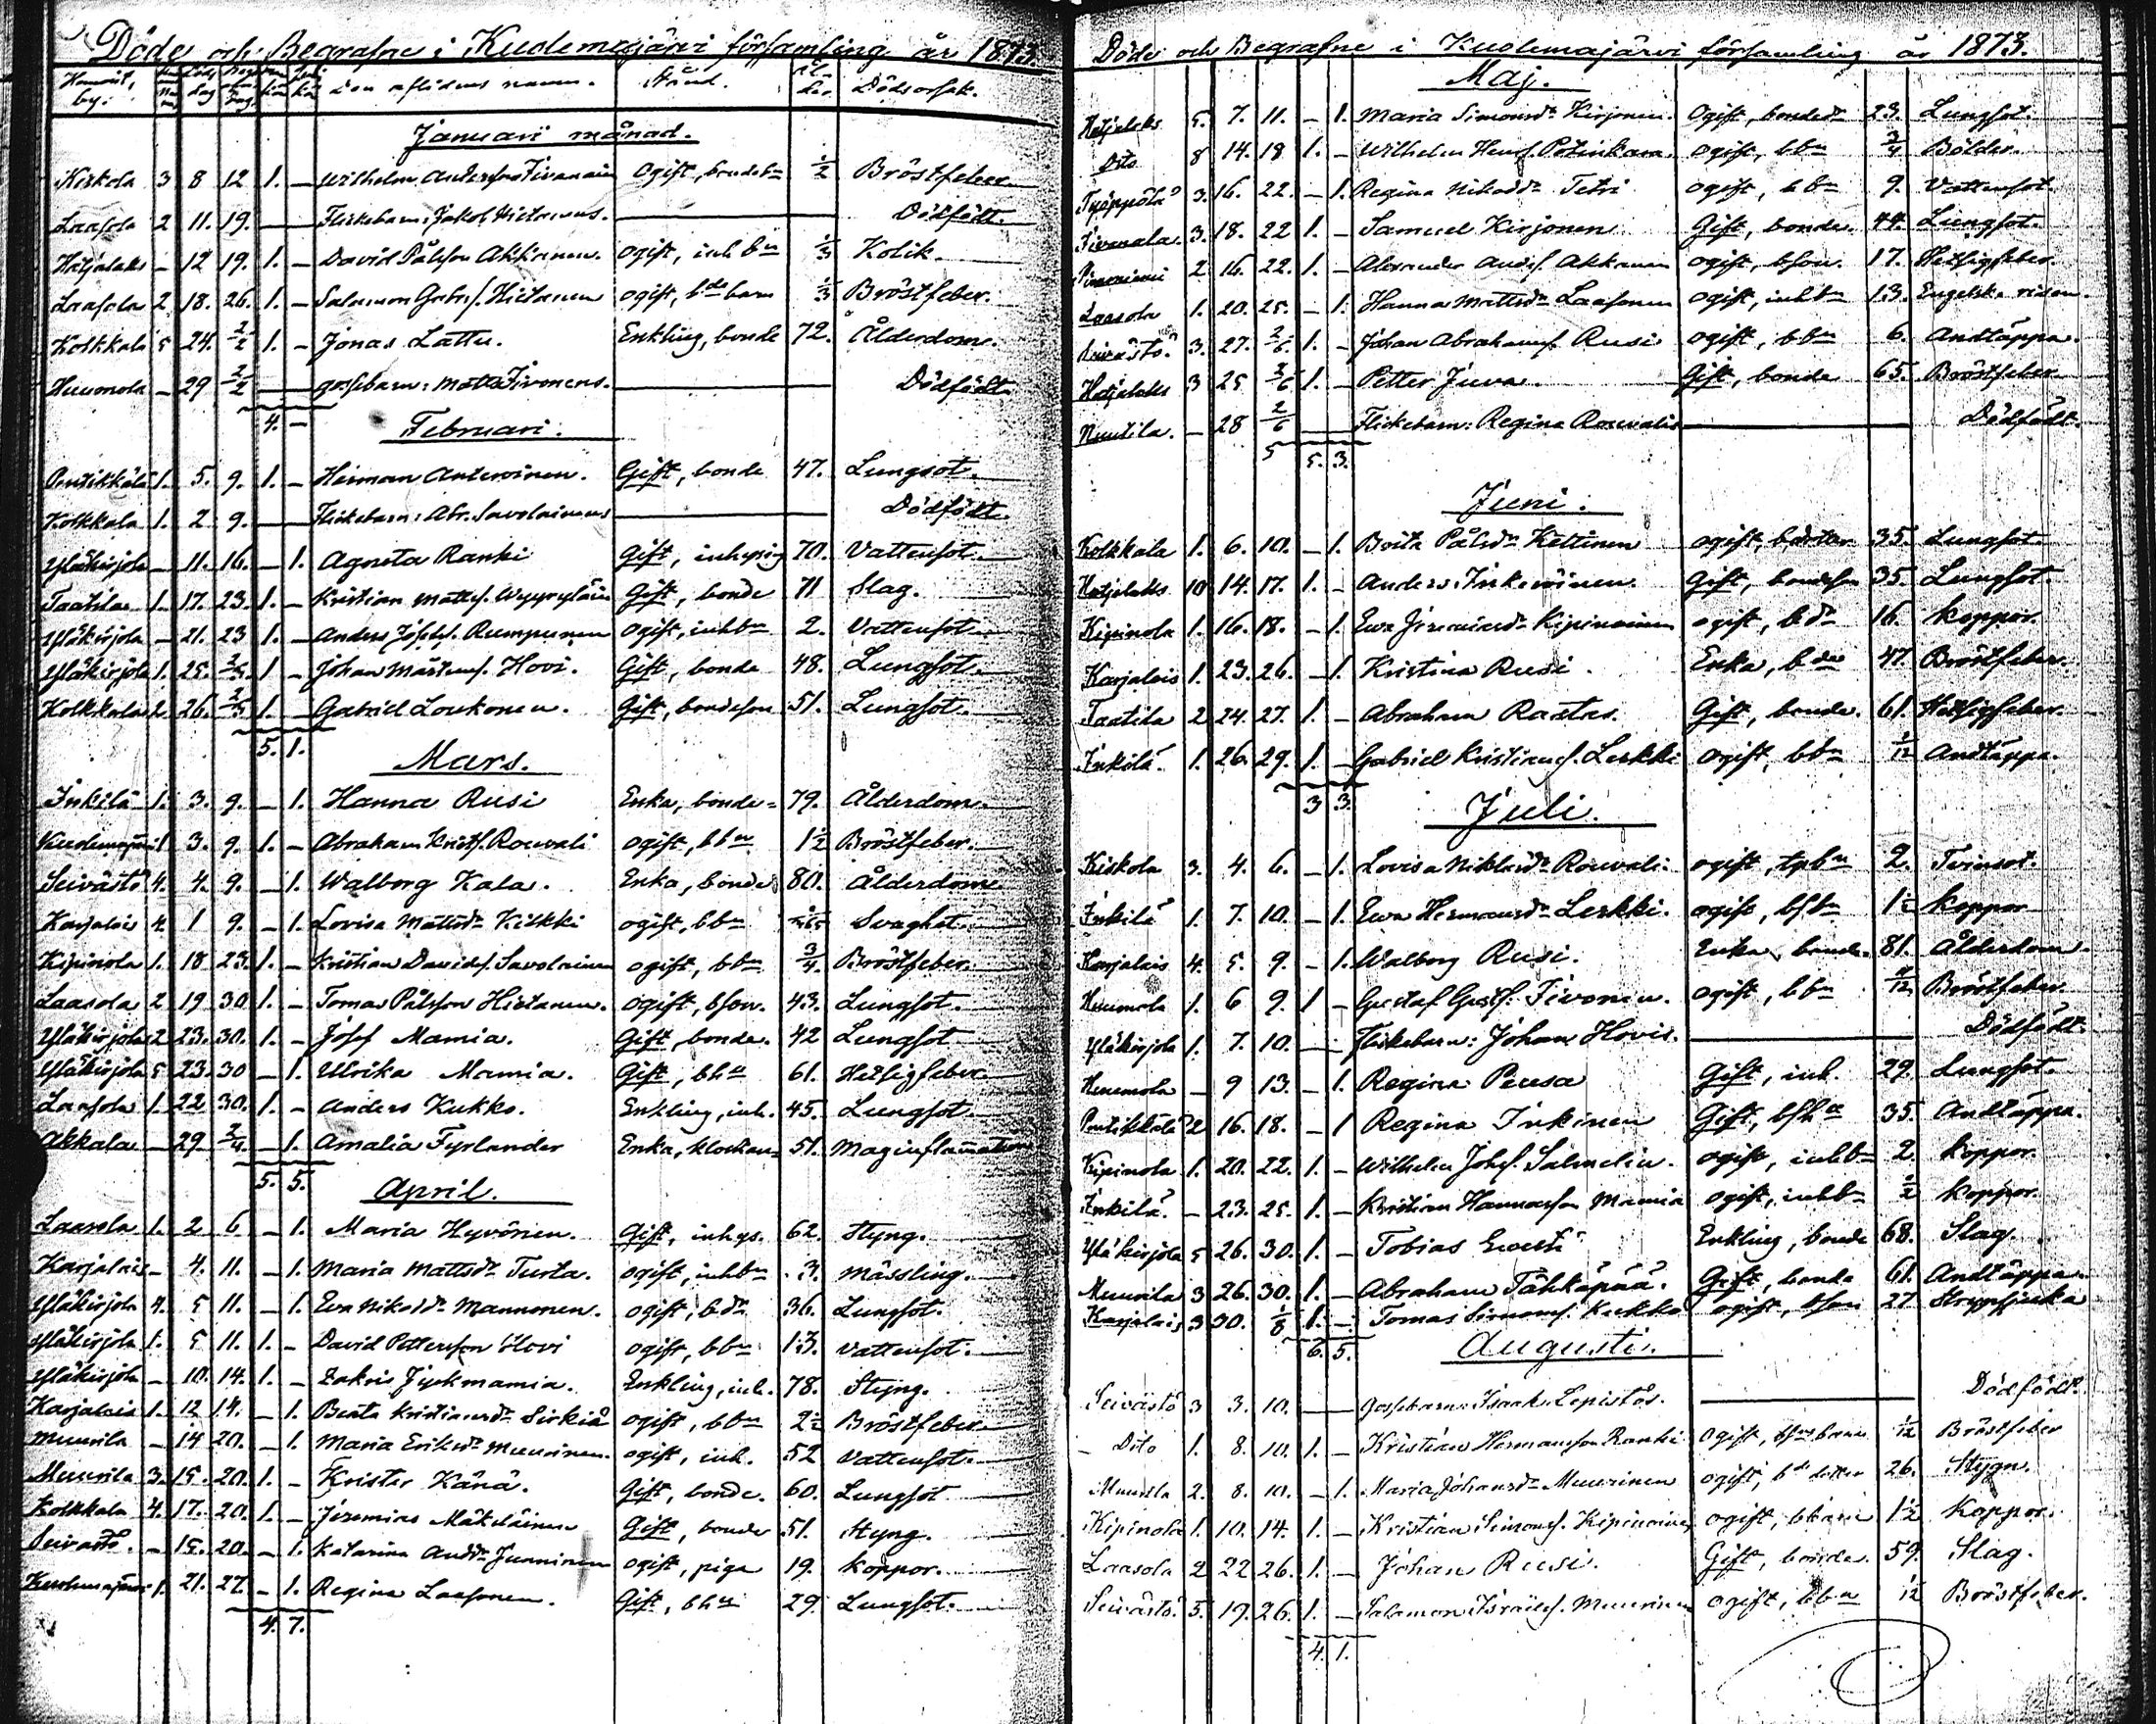 Döde och Begrafne i Kuolemajärvi församling år 1873.
Hemvist, by. Den aflidnes namn. Stånd. Dödsorsak.
Januari månad.
Kiskola 3 8 12 1. – Wilhelm Andersson Ogift, 1/2 Bröstfeber
Laasola 2 11. 19. — Flickebarn: Jakob Hietanens. — Dödfödt.
Hatjalaks – 12 19. 1. – David Pålsson Akkanen. ogift, inh bn 1/3 Kolik.
Laasola 2 18. 26. 1. – Salomon Gabrs. Hietanen ogift, bde barn 1/3 Bröstfeber.
Kolkkala 5 24. 2/2 1. – Jonas Lattu. Enkling, bonde 72. Ålderdom.
Huumola – 29 2/2 — gossebarn: Matts Iivonens. — Dödfödt.
4. –
Februari.
Pentikkälä 1. 5. 9. 1. – Herman Anteroinen. Gift, bonde 47. Lungsot.
Kolkkala 1. 2 9. — Flickebarn: Abr. Savolainens — Dödfödt.
Yläkirjola – 11. 16. – 1. Agneta Ranki Gift, 70. Vattensot.
Taatila 1. 17. 23. 1. – Kristian Mattss. Gift, bonde 71 Slag.
Yläkirjola – 21. 23 1. – Anders Josefs. Rumpunen ogift, inhbn 2. Vattensot.
Yläkirjola 1. 25. 1 – Johan Mårtens. Hovi. Gift, bonde 48. Lungsot.
Kolkkala 2. 26. 1. – Gabriel Loukonen. Gift, bondeson 51. Lungsot.
5. 1.
Mars.
Inkilä 1. 3. 9. – 1. Hanna Rusi Enka, bonde= 79. Ålderdom.
Kuolemajärvi 1 3. 9. 1. – Abraham Krists. Rouvali ogift, bbn 1 1/2 Bröstfeber.
Seivästö 4. 4. 9. – 1. Walborg Kala. Enka, bonde 80. Ålderdom.
Karjalais 4. 1 9. – 1. Lovisa Mattsdr Kikkki ogift, bbn Svaghet.
Kipinola 1. 18 23. 1. – Kristian Davids. Savolainen ogift, bbn 3/4. Bröstfeber.
Laasola 2 19 30 1. – Tomas Pålsson Hietanen. ogift, bson. 43. Lungsot.
Yläkirjola 2 23. 30. 1. – Josef Mamia. Gift, bonde. 42 Lungsot
Yläkirjola 5 23. 30 – 1. Ulrika Mamia. Gift, bhu 61. Hetsigfeber
Laasola 1. 22 30. 1. – Anders Kukko. Enkling, inh. 45. Lungsot.
Akkala – 29. 2/4. – 1. Amalia Fyrlander Enka, 51. Maginflammation
5. 5.
April.
Laasola 1. 2 6 – 1. Maria Hyvönen. Gift, inhys. 62. Styng.
Karjalais – 4. 11. – 1. Maria Mattsdr Turta. ogift, inhbn 3. Mässling.
Yläkirjola 4. 5 11. – 1. Eva Nikodr Mannonen. ogift, bdr 36. Lungsot.
Yläkirjola 1. 5 11. 1. – David Pettersson Hovi ogift, bbn 13. Vattensot.
Yläkirjola – 10. 14. 1. – Zakris Jyckmamia. Enkling, inh. 78. Styng.
Karjalais 1. 12 14. – 1. Beata Kristiansdr Sirkiä ogift, bbn 2 1/2 Bröstfeber
Muurila – 14 20. – 1. Maria Eriksdr Muurinen. ogift, inh. 52 Vattensot.
Muurila 3. 15. 20. 1. – Krister Känä. Gift, bonde. 60. Lungsot
Kolkkala 4. 17. 20. 1. – Jeremias Mäkeläinen Gift, bonde 51. Styng.
Seivästö. – 15. 20. – 1. Katarina Andrdr Junninen ogift, piga 19. koppor.
Kuolemajärvi 1. 21. 27. – 1. Regina Laasonen. Gift, bhu 29. Lungsot.
4. 7.
Döde och Begrafne i Kuolemajärvi församling år 1873.
Maj.
Hatjalaks 5. 7. 11. – 1. Maria Simonsdr Kirjonen. Ogift, bondedr 23. Lungsot.
Dito 8 14. 18 1. – Wilhelm Henr. Potinkara. ogift, bbn 3/4 Bölder.
Työppölä 3. 16. 22. – 1. Regina Nikodr Tetri ogift, bbn 9. Vattensot.
Iivanala. 3. 18. 22 1. – Samuel Kirjonen Gift, bonde. 44. Lungsot.
2 16. 22. 1. – Alexander Anders. Akkanen ogift, bson. 17. Hetsigfeber.
Laasola 1. 20. 25. – 1. Hanna Mattsdr Laasonen ogift, inhbn 13. Engelska risen.
Seivästö. 3. 27. 2/6. 1. – Johan Abrahams. Rusi ogift, bbn 6. Andtäppa.
Hatjalaks 3 25 2/6 1. – Petter Juva. Gift, bonde 65. Bröstfeber
Nuutila. – 28 2/6 — Flickebarn: Regina Rouvalis — Dödfödt.
5 5. 3.
Juni.
Kolkkala 1. 6. 10. – 1. Brita Pålsdr Kettinen ogift, bdotter 35. Lungsot
Hatjalaks 10 14. 17. 1. – Anders Inkeroinen. Gift, bondeson 35. Lungsot.
Kipinola 1. 16. 18. – 1. Eva Jeremiasdr Kipinoinen ogift, bdr 16. koppor.
Karjalais 1. 23. 26. – 1. Kristina Rusi. Enka, 47. Bröstfeber.
Taatila 2 24. 27. 1. – Abraham Raatas. Gift, bonde. 61. Hetsigfeber.
Inkilä. 1. 26. 29. 1. – Gabriel Kristians. Leskki ogift, bbn 1/12 Andtäppa.
3 3.
Juli.
Kiskola 3. 4. 6. – 1. Lovisa Niklasdr Rouvali. ogift, 2. Tvinsot.
Inkilä 1. 7. 10. – 1. Eva Hermansdr Leskki. ogift, bsbn 1 1/2 koppor
Karjalais 4. 5. 9. – 1. Walborg Rusi. Enka, bonde. 81. Ålderdom.
Huumola 1. 6 9. 1 – Gustaf Gusts. Iivonen. ogift, bbn Bröstfeber.
Yläkirjola 1. 7. 10. — Flickebarn: Johan Hovis. — Dödfödt.
Huumola – 9 13. – 1. Regina Peusa Gift, inh. 29. Lungsot.
Pentikkälä 2 16. 18. – 1 Regina Inkinen Gift, bshu 35. Andtäppa.
Kipinola 1. 20. 22. 1. – Wilhelm Johs. Salmelin. ogift, inhbn 2. koppor.
Inkilä. – 23. 25. 1. – Kristian Hermansson Mamia ogift, inhbn 1/2 koppor.
Yläkirjola 5 26. 30. 1. – Tobias Enkling, bonde 68. Slag.
Muurila 3 26. 30. 1. – Abraham Tähkäpää. Gift, bonde 61. Andtäppa
Karjalais 3 30. 1/8 1. – Tomas Simons. Kukko ogift, bson 27 Strypsjuka
6. 5.
Augusti.
Seivästö 3 3. 10. — gossebarn: Isaak Lepistös. — Dödfödt.
– Dito 1. 8. 10. 1. – Kristian Hermansson Ranki ogift, barn 1/12 Bröstfeber
Muurila 2. 8. 10. – 1. Maria Johansdr Muurinen ogift, bde dotter 26. Stygn.
Kipinola 1. 10. 14. 1. – Kristian Simons. Kipinoinen ogift, bbarn 1 1/2 Koppor.
Laasola 2 22 26. 1. – Johan Rusi. Gift, bonde. 59. Slag.
Seivästö 5. 19. 26. 1. – Salomon Israels. Muurinen ogift, bbn 1/12 Bröstfeber.
4. 1.